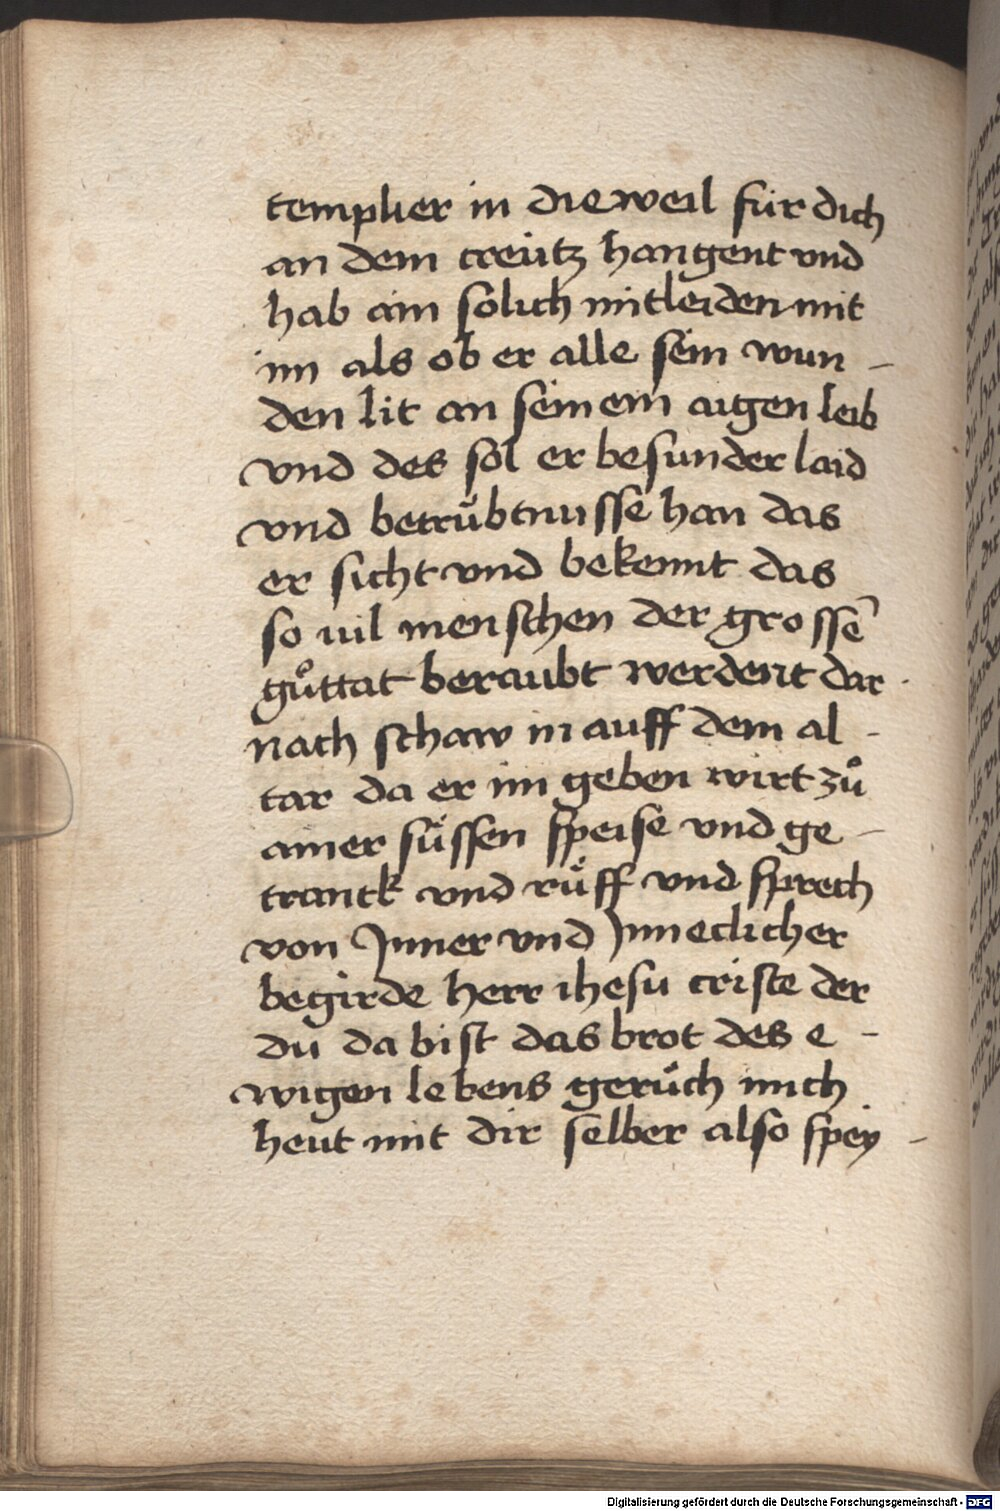 templier in die weil für dich
an dem creütz hangent vnd
hab ain solich mitleiden mit
im als ob er alle sein wun -
den lit an seinem aigen leib
vnd des sol er besunder laid
vnd betrübtnusse han das
er sicht vnd bekennt das
so uil menschen der grossē
gůttat beraubt werdent dar
nach schaw in auff dem al -
tar da er im geben wirt zů
ainer süssen speise vnd ge -
tranck vnd rüff vnd sprech
von Inner vnd Inneclicher
begirde herr ihesu criste der
du da bist das brot des e -
wigen lebens gerüch mich
heut mit dir selber also spey -
Digitalisierung gefördert durch die Deutsche Forschungsgemeinschaft - DFG